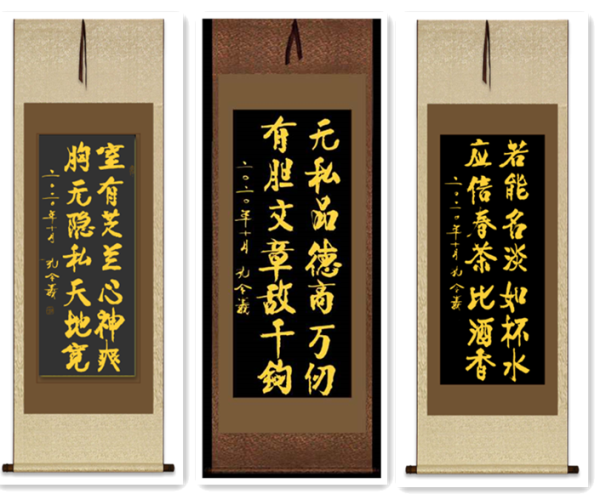 室有芝兰心神爽
胸无隐私天地宽
二〇二一年十月 孔令义
无私品德高万仞
有胆文章敌千钧
二〇二〇年十月 孔令义
若能名淡如杯水
应信春茶比酒香
二〇二〇年十月 孔令义